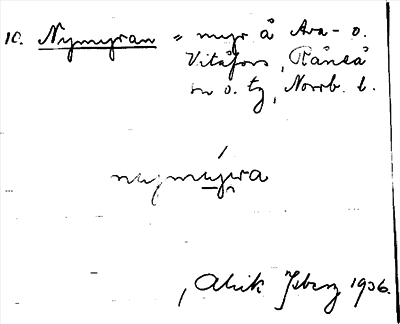 10. Nymyran = myr å Ara- o.
Vitåfors, Råneå
sn o. tg, Norrb. l.
nymýra
Alrik Ysberg 1936.